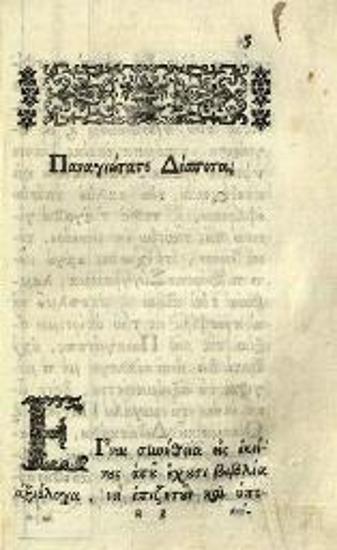 3
Παναγιώτατε Δέσποτα,
Εἶναι συνήθεια εἰς ἐκεί-
νους ὁποῦ ἔχουσι βιβλία
ἀξιόλογα, νὰ ἐπιζητοῦν καὶ ὑπε-